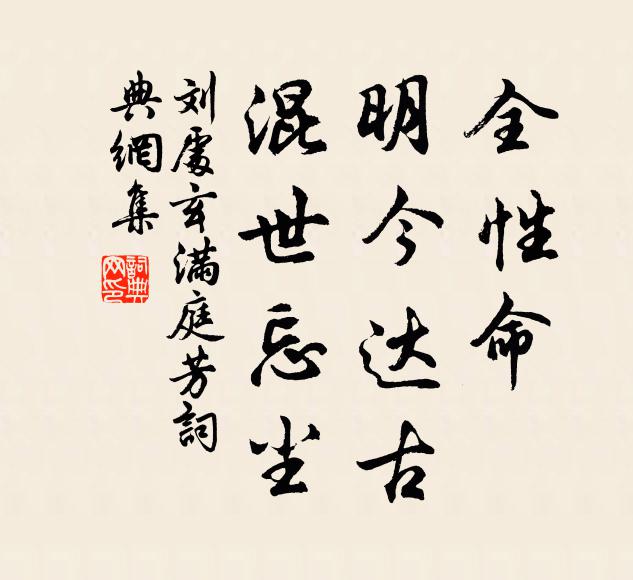 全性命
明今达古
混世忘尘
刘處玄满庭芳詞
典網集
詞典网印